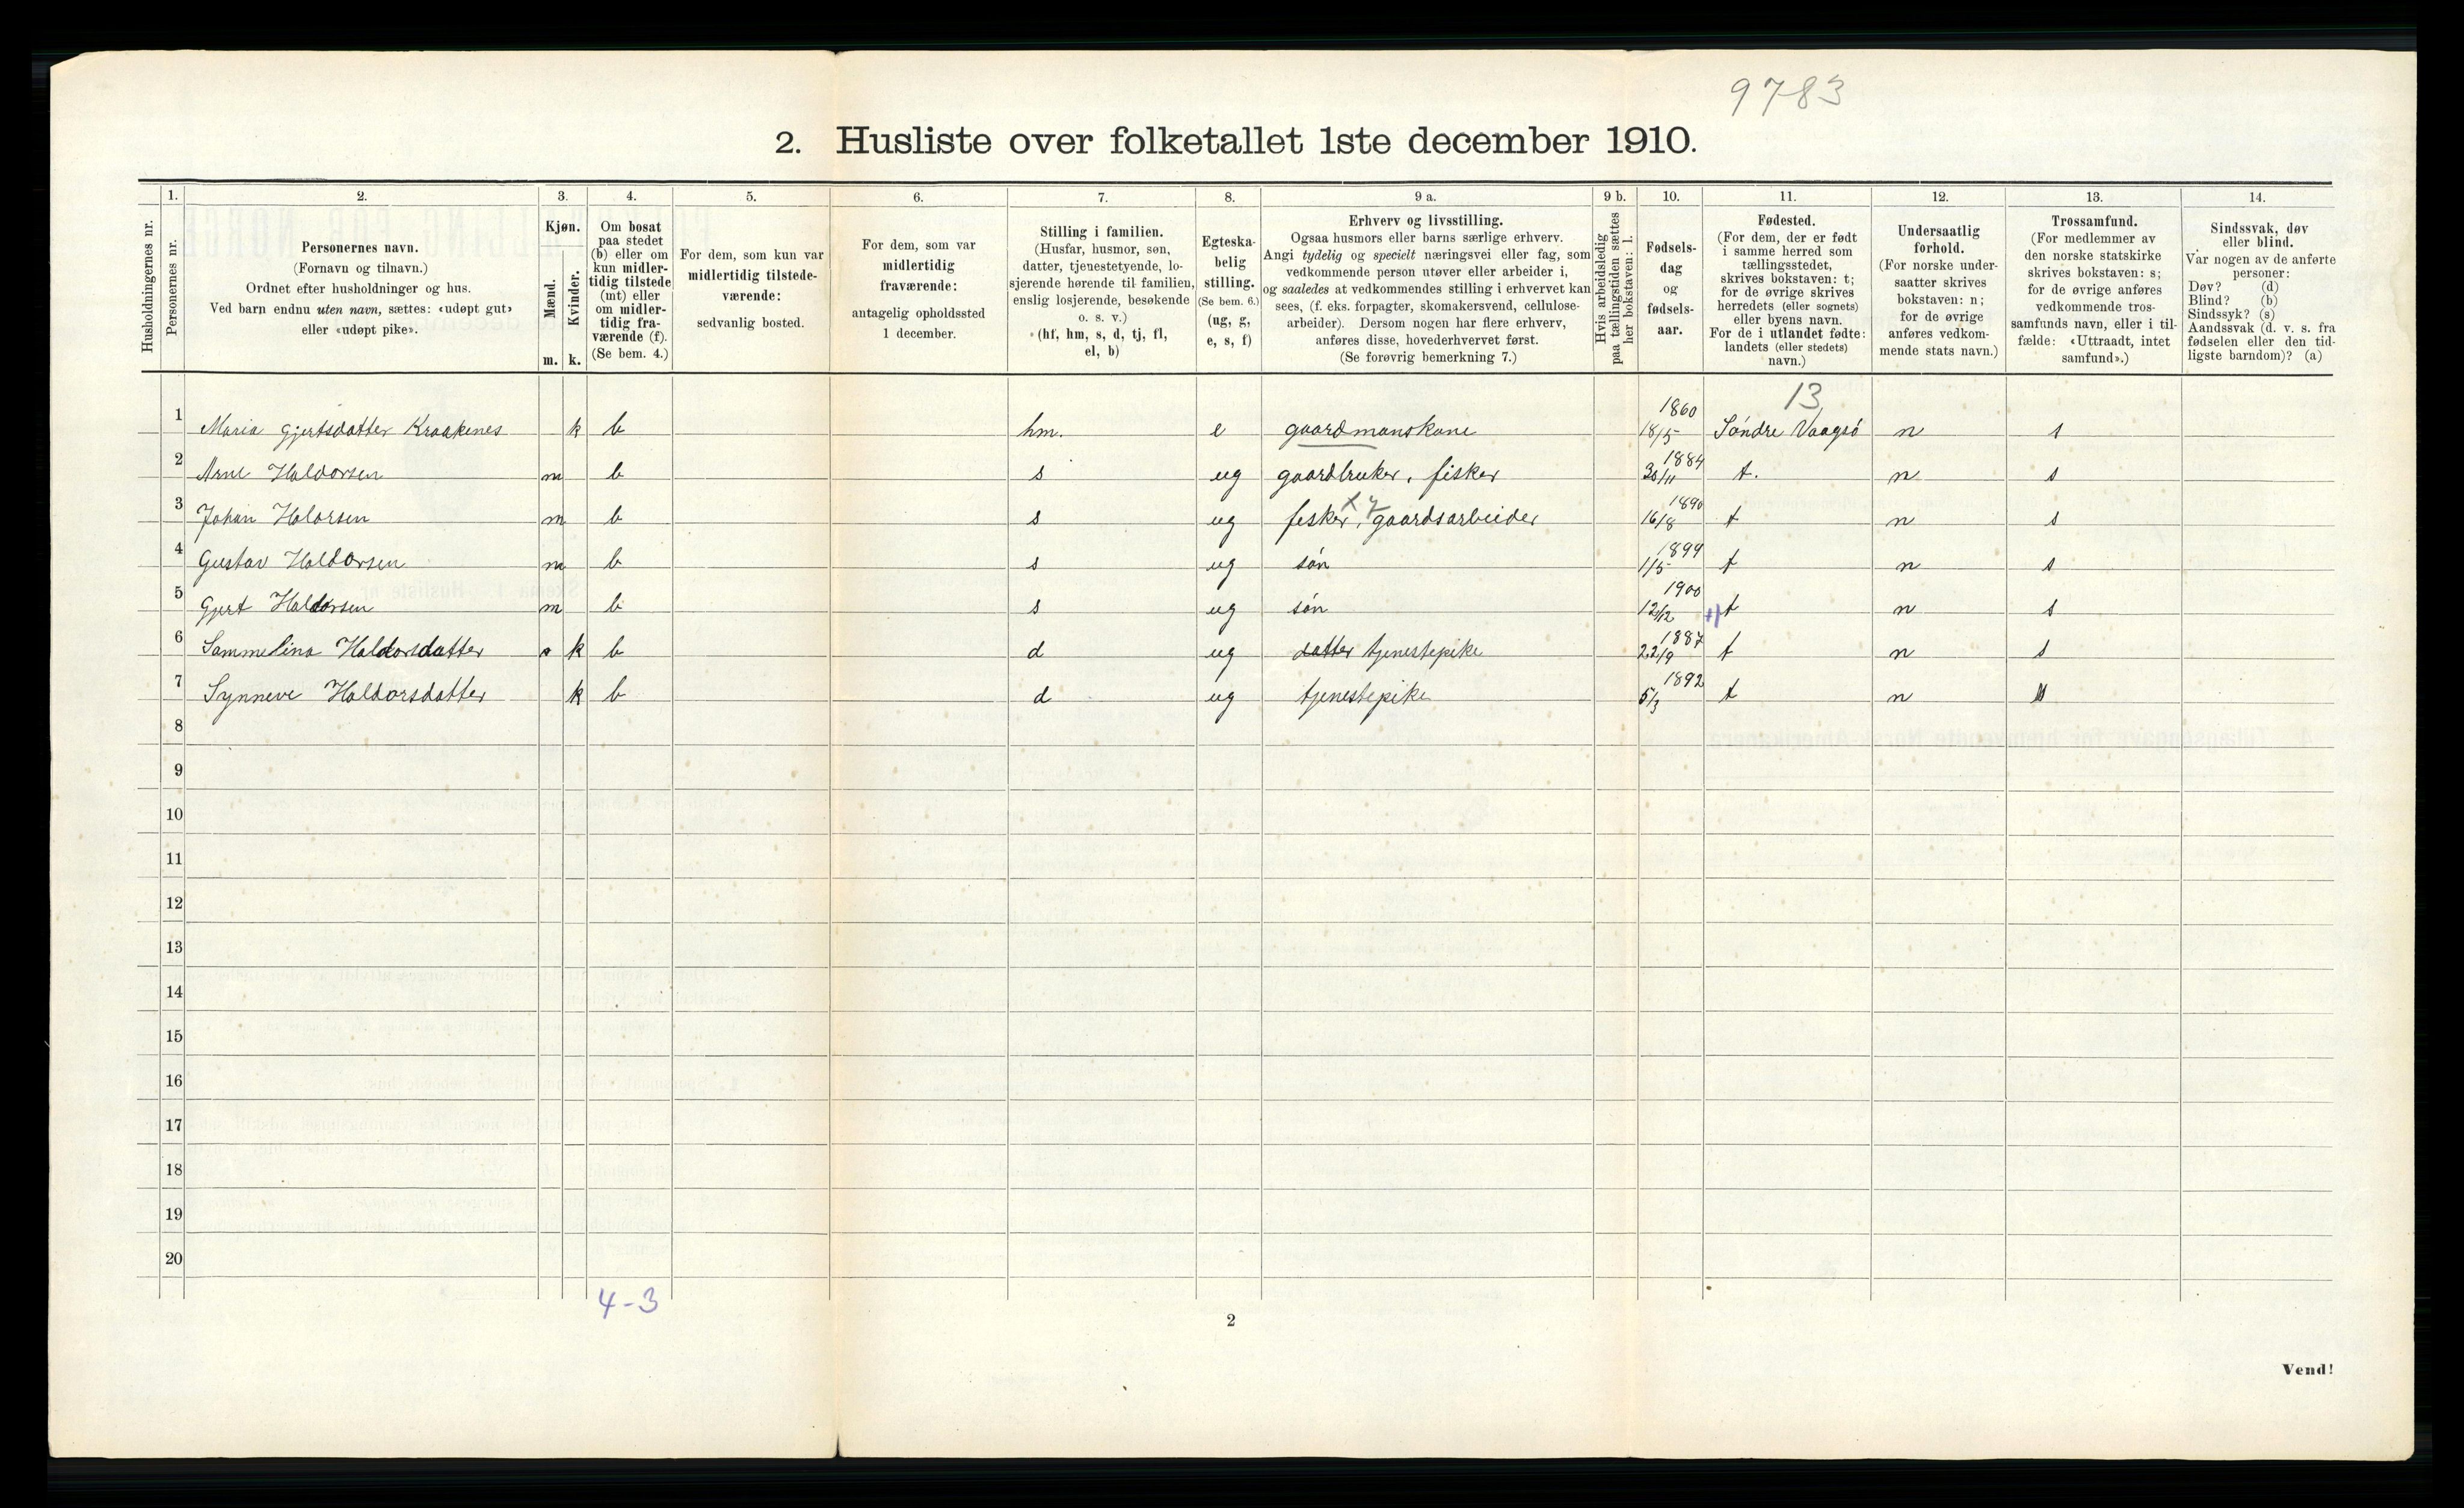 9783
2. Husliste over folketallet 1ste december 1910.
1. 2. 3. 4. 5. 6. 7. 8. 9 a. 9 b. 10. 11. 12. 13. 14.
Husholdningernes nr.
Personernes nr.
Personernes navn.
(Fornavn og tilnavn.)
Ordnet efter husholdninger og hus.
Ved barn endnu uten navn, sættes: «udøpt gut»
eller «udøpt pike».
Kjøn.
Mænd.
Kvinder.
m. k.
Om bosat
paa stedet
(b) eller om
kun midler-
tidig tilstede
(mt) eller
om midler-
tidig fra-
værende (f).
(Se bem. 4.)
For dem, som kun var
midlertidig tilstede-
værende:
sedvanlig bosted.
For dem, som var
midlertidig
fraværende:
antagelig opholdssted
1 december.
Stilling i familien.
(Husfar, husmor, søn,
datter, tjenestetyende, lo-
sjerende hørende til familien,
enslig losjerende, besøkende
o. s. v.)
(hf, hm, s, d, tj, fl,
el, b)
Egteska-
belig
stilling.
(Se bem. 6.)
(ug, g,
e, s, f)
Erhverv og livsstilling.
Ogsaa husmors eller barns særlige erhverv.
Angi tydelig og specielt næringsvei eller fag, som
vedkommende person utøver eller arbeider i,
og saaledes at vedkommendes stilling i erhvervet kan
sees, (f. eks. forpagter, skomakersvend, cellulose-
arbeider). Dersom nogen har flere erhverv,
anføres disse, hovederhvervet først.
(Se forøvrig bemerkning 7.)
Hvis arbeidsledig
paa tællingstiden sættes
her bokstaven: l.
Fødsels-
dag
og
fødsels-
aar.
Fødested.
(For dem, der er født
i samme herred som
tællingsstedet,
skrives bokstaven: t;
for de øvrige skrives
herredets (eller sognets)
eller byens navn.
For de i utlandet fødte:
landets (eller stedets)
navn.)
Undersaatlig
forhold.
(For norske under-
saatter skrives
bokstaven: n;
for de øvrige
anføres vedkom-
mende stats navn.)
Trossamfund.
(For medlemmer av
den norske statskirke
skrives bokstaven: s;
for de øvrige anføres
vedkommende tros-
samfunds navn, eller i til-
fælde: «Uttraadt, intet
samfund».)
Sindssvak, døv
eller blind.
Var nogen av de anførte
personer:
Døv? (d)
Blind? (b)
Sindssyk? (s)
Aandssvak (d. v. s. fra
fødselen eller den tid-
ligste barndom)? (a)
13
1 Maria Gjertsdatter Kraakenes k b hm. e gaardmanskone 1860 18/5 Söndre Vaagsö n s
2 Arne Haldorsen m b s ug gaardbruker, fisker 1884 30/11 t. n s
3 Johan Halorsen m b s ug fesker, gaardsarbeider 1890 16/8 t n s
4 Gustav Haldorsen m b s ug sön 1899 1/5 t n s
5 Gjert Haldorsen m b s ug sön 1900 12/12 t n s
6 Sammelina Haldorsdatter k b d ug datter tjenestepike 1887 22/9 t n s
7 Synneve Haldorsdatter k b d ug tjenestepike 1892 5/3 t n s
8
9
10
11
12
13
14
15
16
17
18
19
20
4-3
2
Vend!